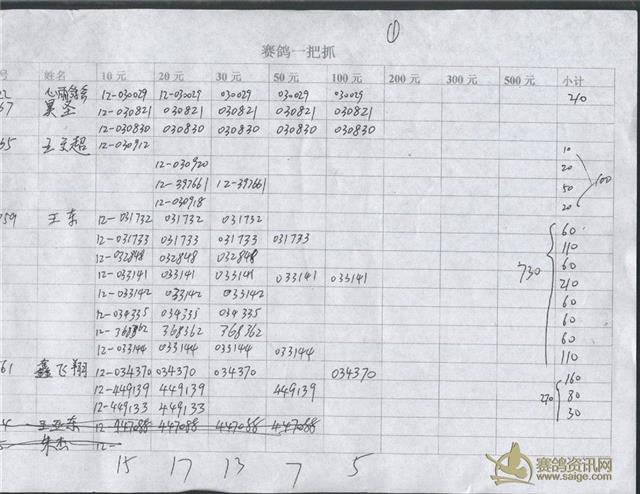 ①
赛鸽一把抓
号 姓名 10元 20元 30元 50元 100元 200元 300元 500元 小计
22 12-030029 12-030029 030029 030029 030029 210
67 昊圣 12-030821 030821 030821 030821 030821
12-030830 030830 030830 030830 030830
65 王文超 12-030912 10
12-030920 20
12-397661 12-397661 50 100
12-030918 20
059 王东 12-031732 031732 031732 60
12-031733 031733 031733 031733 110
12-032848 032848 032848 60
12-033141 033141 033141 033141 033141 730 210
12-033142 033142 033142 60
12-034335 034335 034335 60
12-368362 368362 368362 60
12-033144 033144 033144 033144 110
61 鑫飞翔 12-034370 034370 034370 034370 160
12-449139 449139 449139 270 80
12-449133 449133 30
4 王亚东 12-447088 447088 447088 447088
朱杰 12-
15 17 13 7 5
赛鸽资讯网
www.saige.com